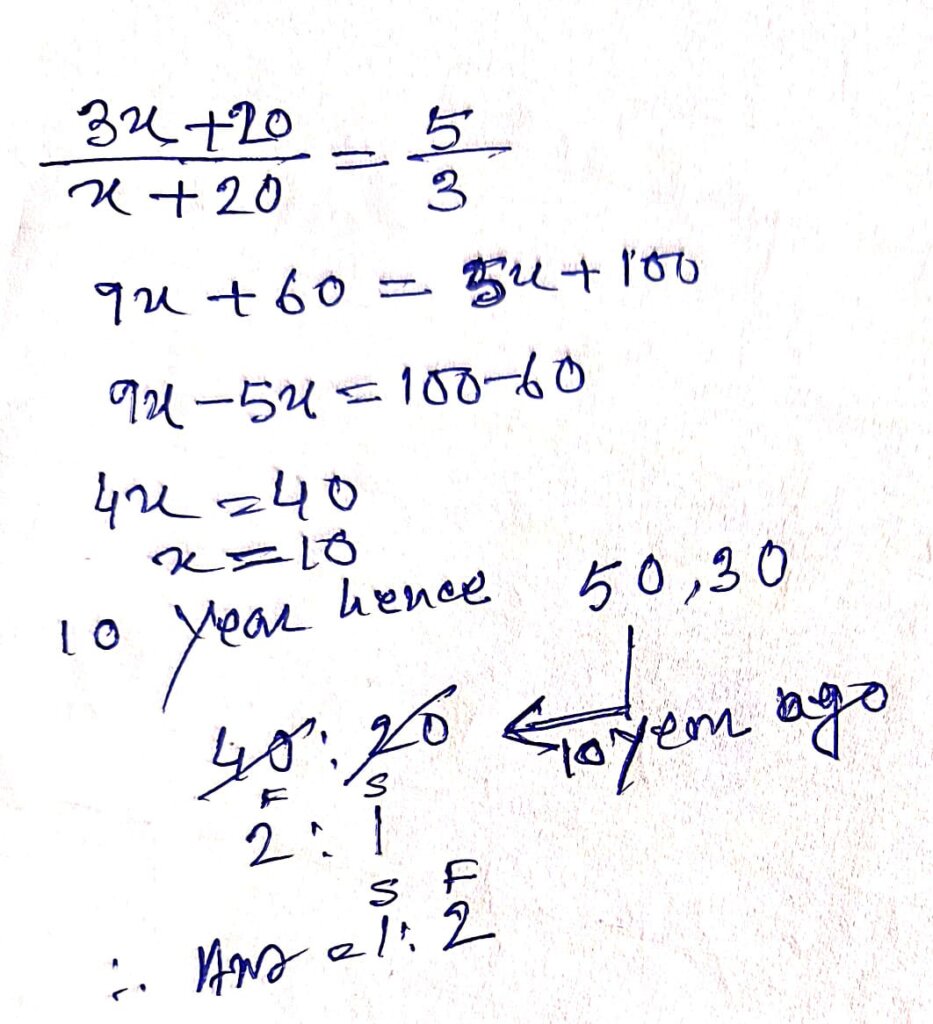 3x+20 / x+20 = 5/3
9x + 60 = 5x + 100
9x – 5x = 100–60
4x = 40
x = 10
10 year hence 50,30
40 : 20 ← 10 year ago
F S
2 : 1
S F
∴ Ans = 1 : 2